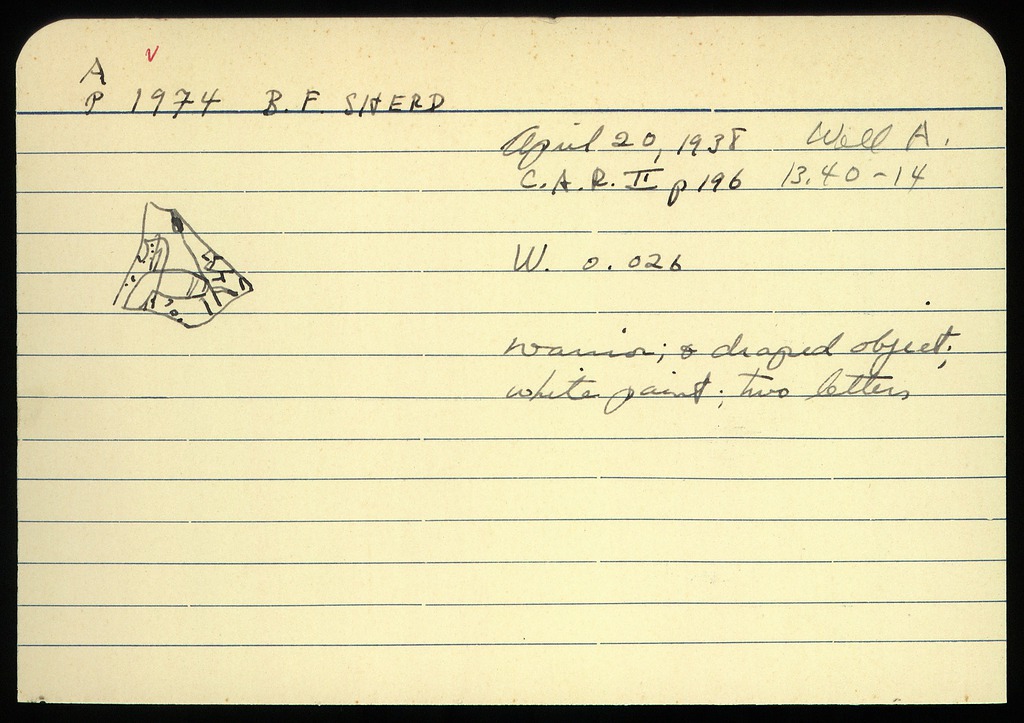 A
P 1974 B.F. SHERD
April 20, 1938 Well A.
C.A.R. II p 196 13.40-14
W. 0.026
warrior; & draped object;
white paint; two letters